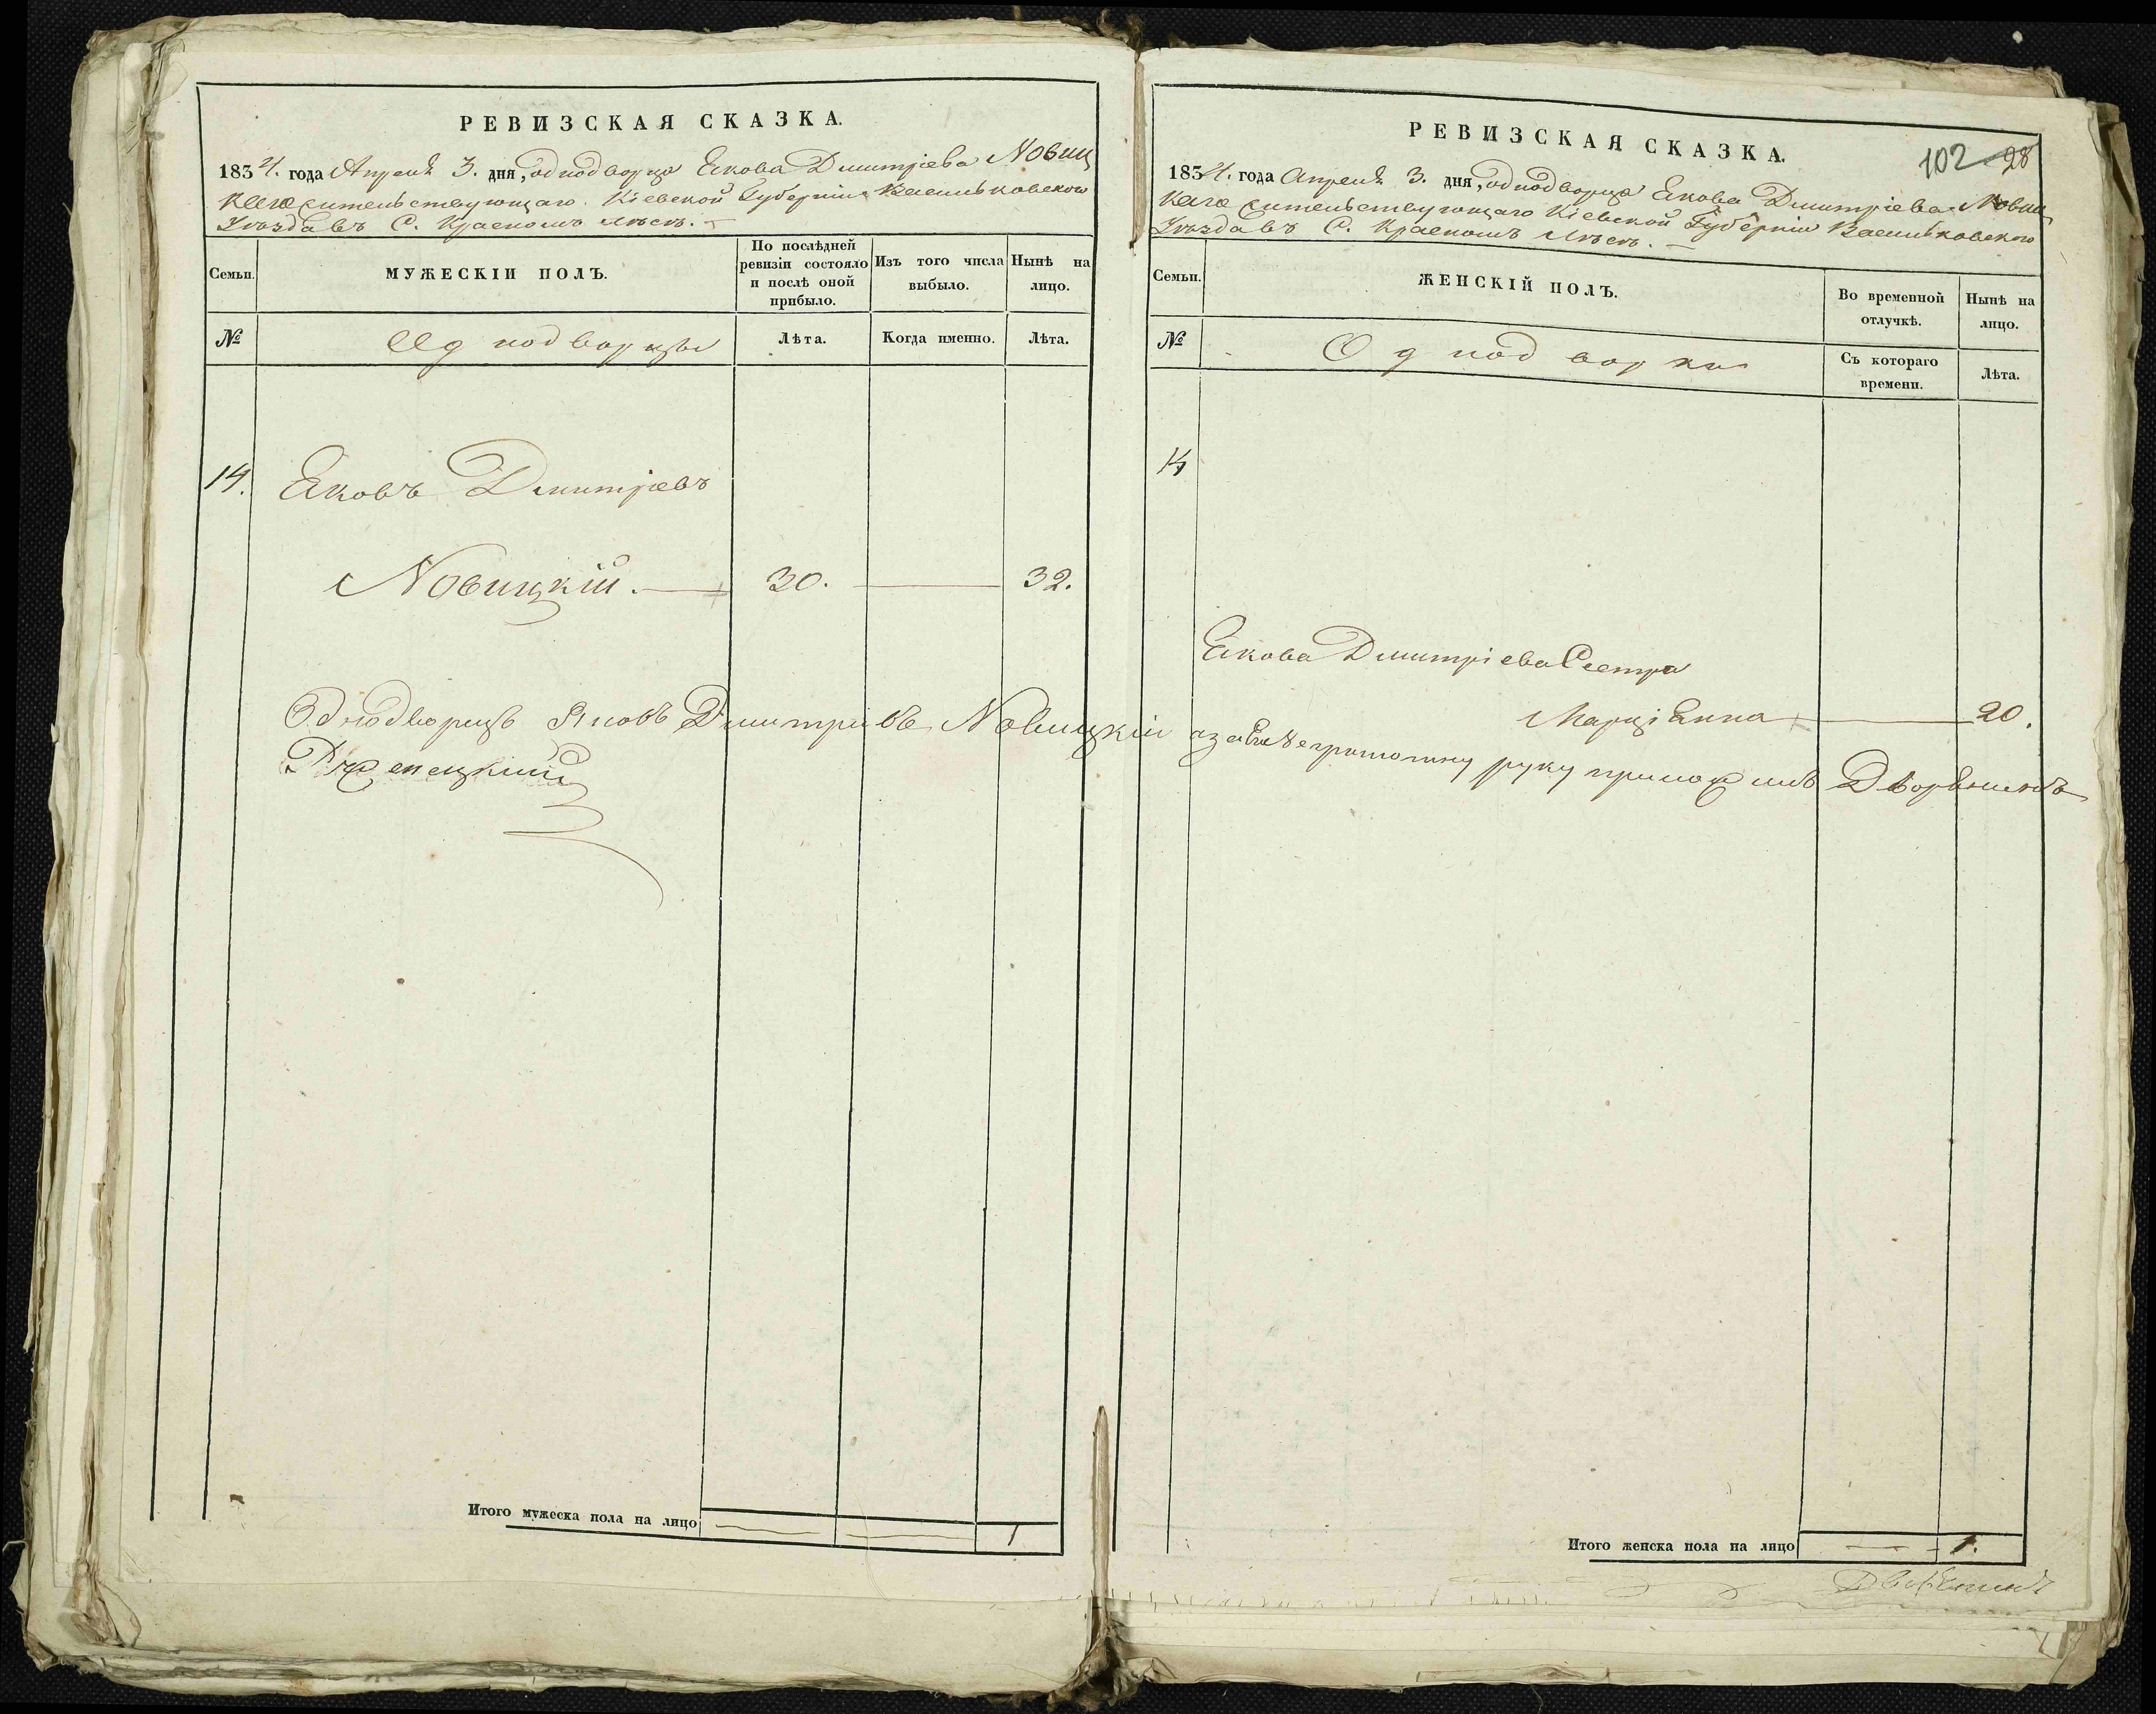 РЕВИЗСКАЯ СКАЗКА.
1834. года Апреля 3. дня, однодворца Якова Дмитріева Новиц
каго жительствующаго Кіевской Губерніи Васильковского
Уѣзда въ С. Красномъ Лѣсѣ. —
Семьи.
МУЖЕСКІИ ПОЛЪ.
По послѣдней
ревизіи состояло
и послѣ оной
прибыло.
Изъ того числа
выбыло.
Нынѣ на
лицо.
№
Однодворцы
Лѣта.
Когда именно.
Лѣта.
14. Яковъ Дмитріевъ
Новицкій. — 30. — 32.
Однодворецъ Яковъ Дмитріевъ Новицкій
Итого мужеска пола на лицо — — 1
102 28
РЕВИЗСКАЯ СКАЗКА.
1834. года Апреля 3. дня, однодворца Якова Дмитріева Новиц
каго жительствующаго Кіевской Губерніи Васильковского
Уѣзда въ С. Красномъ Лѣсѣ. —
Семьи.
ЖЕНСКІЙ ПОЛЪ.
Во временной
отлучкѣ.
Нынѣ на
лицо.
№
Однодворки
Съ котораго
времени.
Лѣта.
14
Якова Дмитріева Сестра
Марціянна — 20.
руку приложилъ Дворянинъ
Итого женска пола на лицо — 1.
Дворянинъ